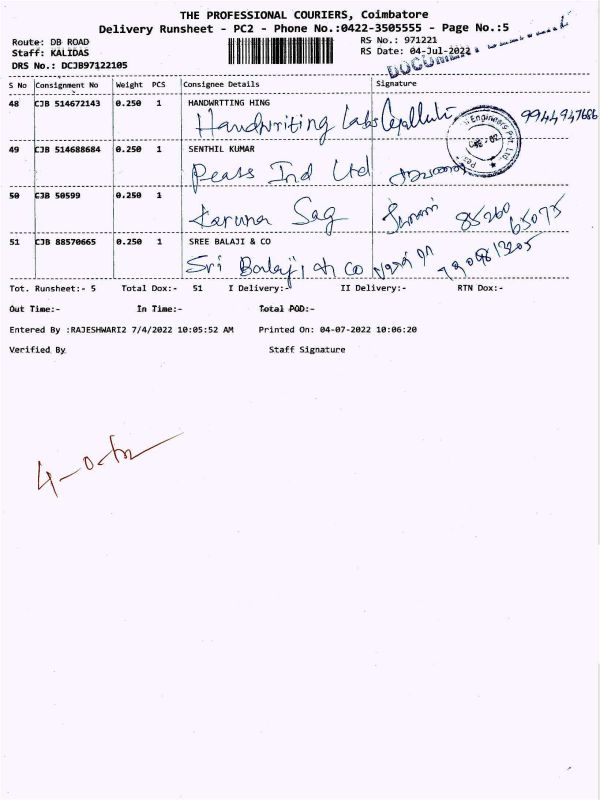 THE PROFESSIONAL COURIERS, Coimbatore
Delivery Runsheet - PC2 - Phone No.:0422-3505555 - Page No.:5
Route: DB ROAD
Staff: KALIDAS
DRS No.: DCJB97122105
RS No.: 971221
RS Date: 04-Jul-2022
S No Consignment No Weight PCS Consignee Details Signature
48 CJB 514672143 0.250 1 HANDWRTTING HING
Handwriting Labs 9944947686
49 CJB 514688684 0.250 1 SENTHIL KUMAR
Pears Ind Ltd
50 CJB 50599 0.250 1
Karuna Sag 85260
65075
51 CJB 88570665 0.250 1 SREE BALAJI & CO
Sri Balaji & Co
Tot. Runsheet:- 5 Total Dox:- 51 I Delivery:- II Delivery:- RTN Dox:-
Out Time:- In Time:- Total POD:-
Entered By :RAJESHWARI2 7/4/2022 10:05:52 AM Printed On: 04-07-2022 10:06:20
Verified By Staff Signature